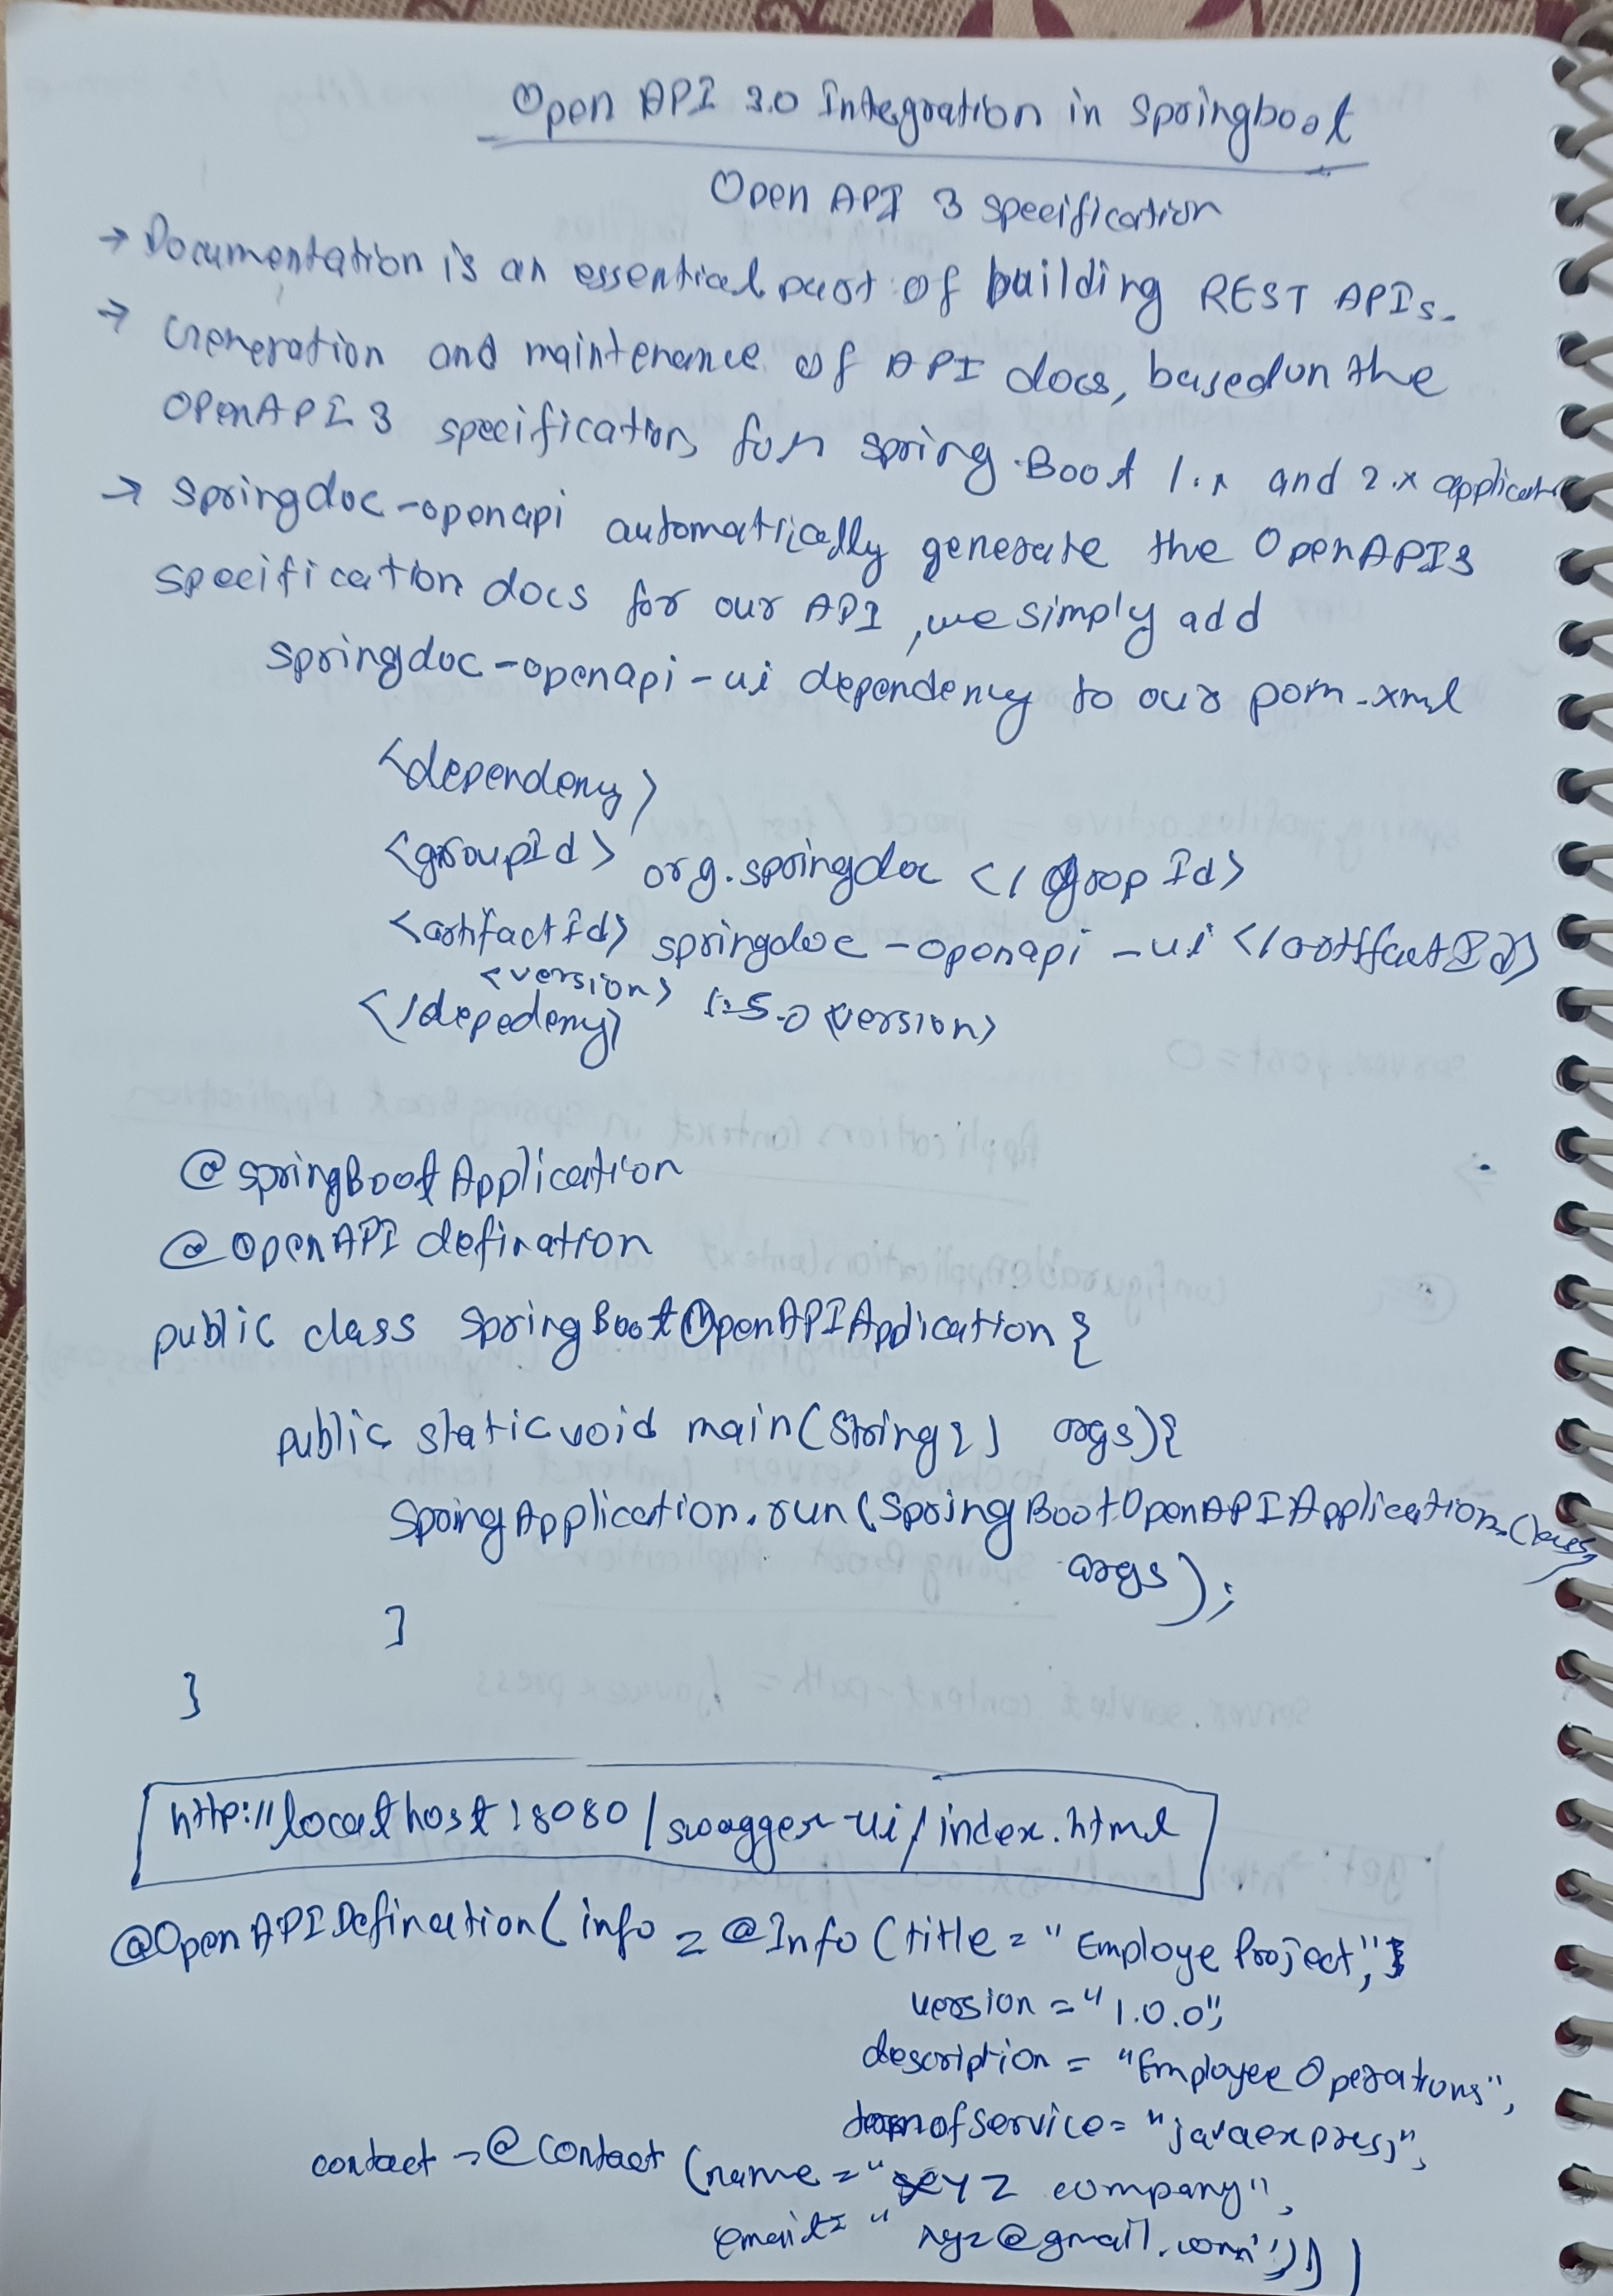 Open API 3.0 Integration in Springboot
Open API 3 specification
→ Documentation is an essential part of building REST APIs.
→ Generation and maintenance of API docs, based on the
OpenAPI 3 specification for spring Boot 1.x and 2.x applicat
→ springdoc-openapi automatrically generate the OpenAPI3
specification docs for our API, we simply add
springdoc-openapi-ui dependency to our pom.xml
<dependeny>
<groupId> org.springdoc </groop Id>
<artifactId> springdoc-openapi-ui </artifactId>
<version> 1.5.0 <version>
</depedeny>
@springBootApplication
@OpenAPI defination
public class SpringBootOpenAPIApplication {
public static void main(String[] args){
SpringApplication.run(SpringBootOpenAPIApplication.class,
args);
}
}
http://localhost:8080/swagger-ui/index.html
@OpenAPIDefination(info = @Info (title = "Employe Project",
version = "1.0.0",
description = "Employee Operations",
termofservice = "javaexpress",
contact = @Contact (name = "xyz company",
email = "xyz@gmail.com")))